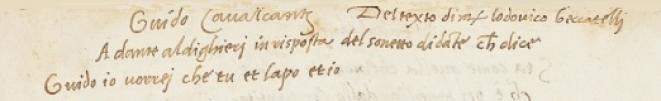 Guido Cavalcantj Del texto di mr lodovico beccatellj
A dante aldighierj in risposta del sonetto di dāte ch̄ dice
Guido io vorrej che tu et lapo et io